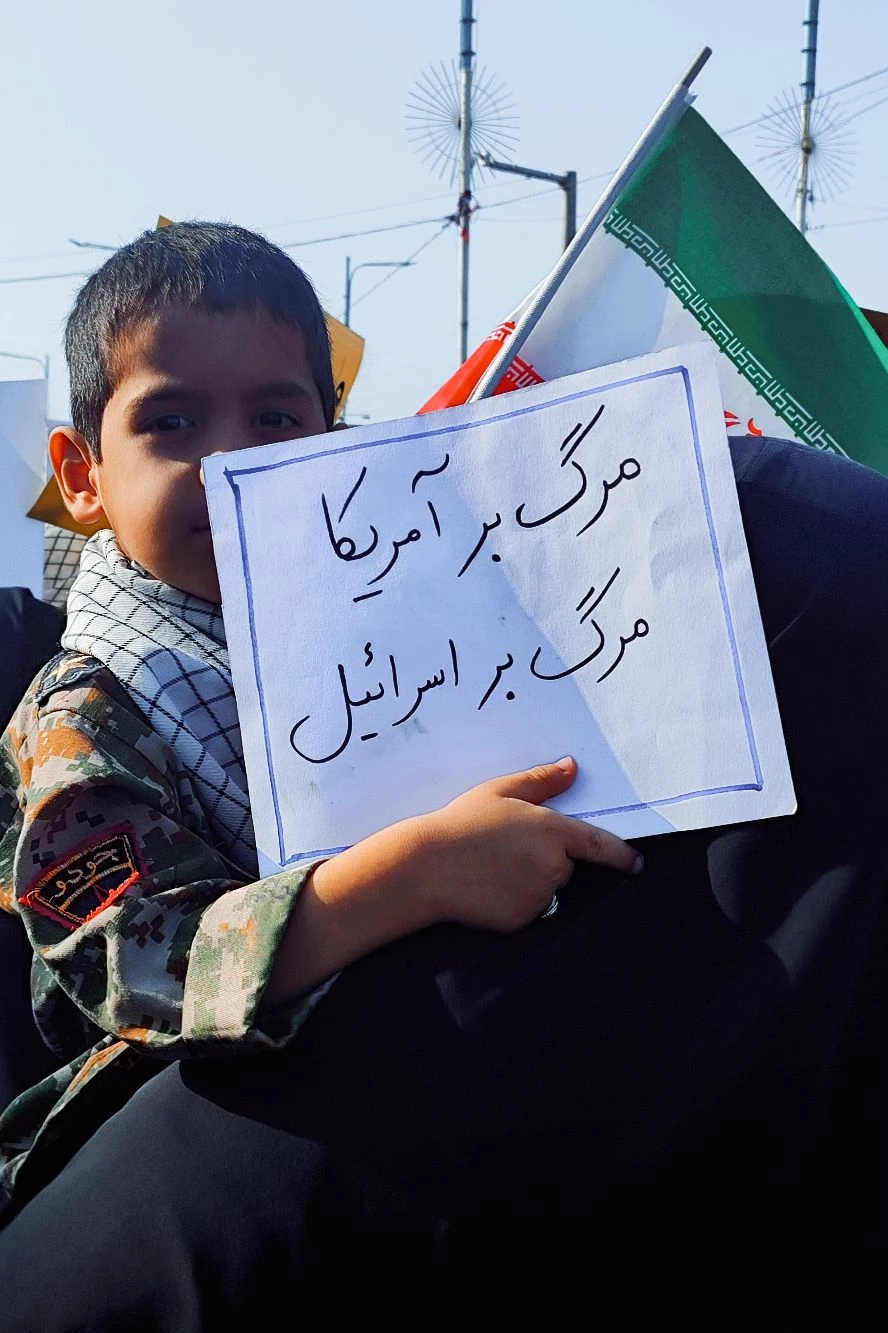 مرگ بر آمریکا
مرگ بر اسرائیل